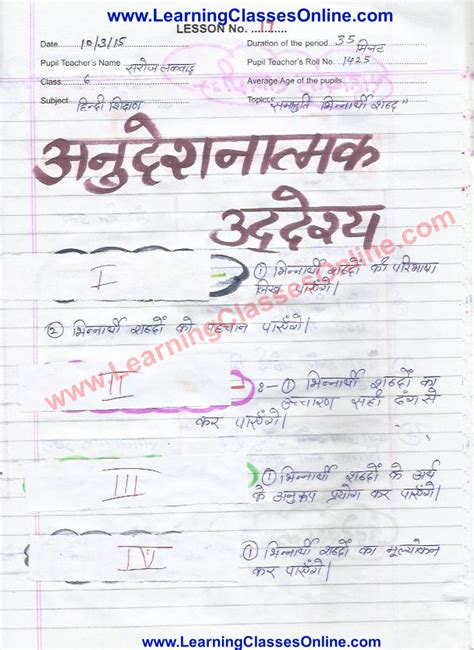 www.LearningClassesOnline.com
LESSON No. ....17....
Date 10/3/15 Duration of the period 35 मिनट
Pupil Teacher's Name सरोज लकवाड़ Pupil Teacher's Roll No. 1425
Class 6 Average Age of the pupils
Subject हिन्दी शिक्षण Topic समश्रुति भिन्नार्थी शब्द"
अनुदेशनात्मक
उद्देश्य
I ① भिन्नार्थी शब्दों की परिभाषा
लिख पाएँगे।
② भिन्नार्थी शब्दों को पहचान पाएँगे।
www.LearningClassesOnline.com
II :- ① भिन्नार्थी शब्दों का
उच्चारण सही ढंग से
कर पाएँगे।
III ① भिन्नार्थी शब्दों के अर्थ
के अनुरूप प्रयोग कर पाएँगे।
IV ① भिन्नार्थी शब्दों का मूल्यांकन
कर पाएँगे।
www.LearningClassesOnline.com